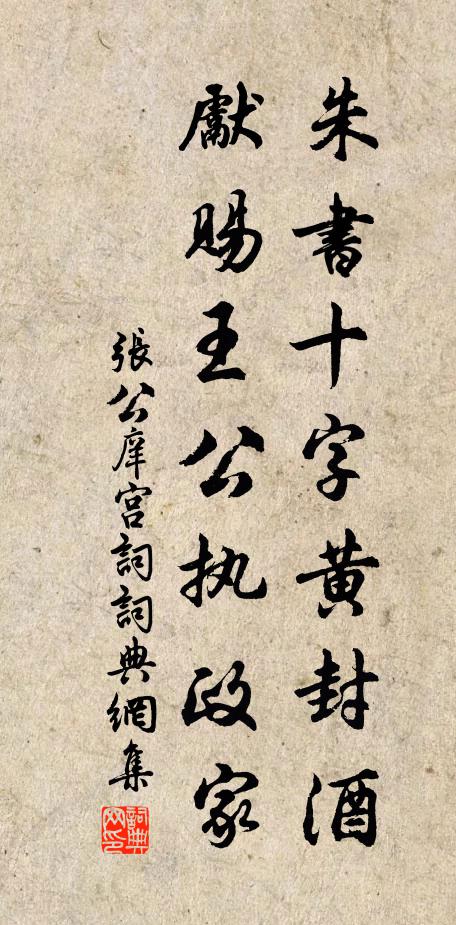 朱書十字黄封酒
獻賜王公执政家
張公庠宫詞詞典網集
詞典网印